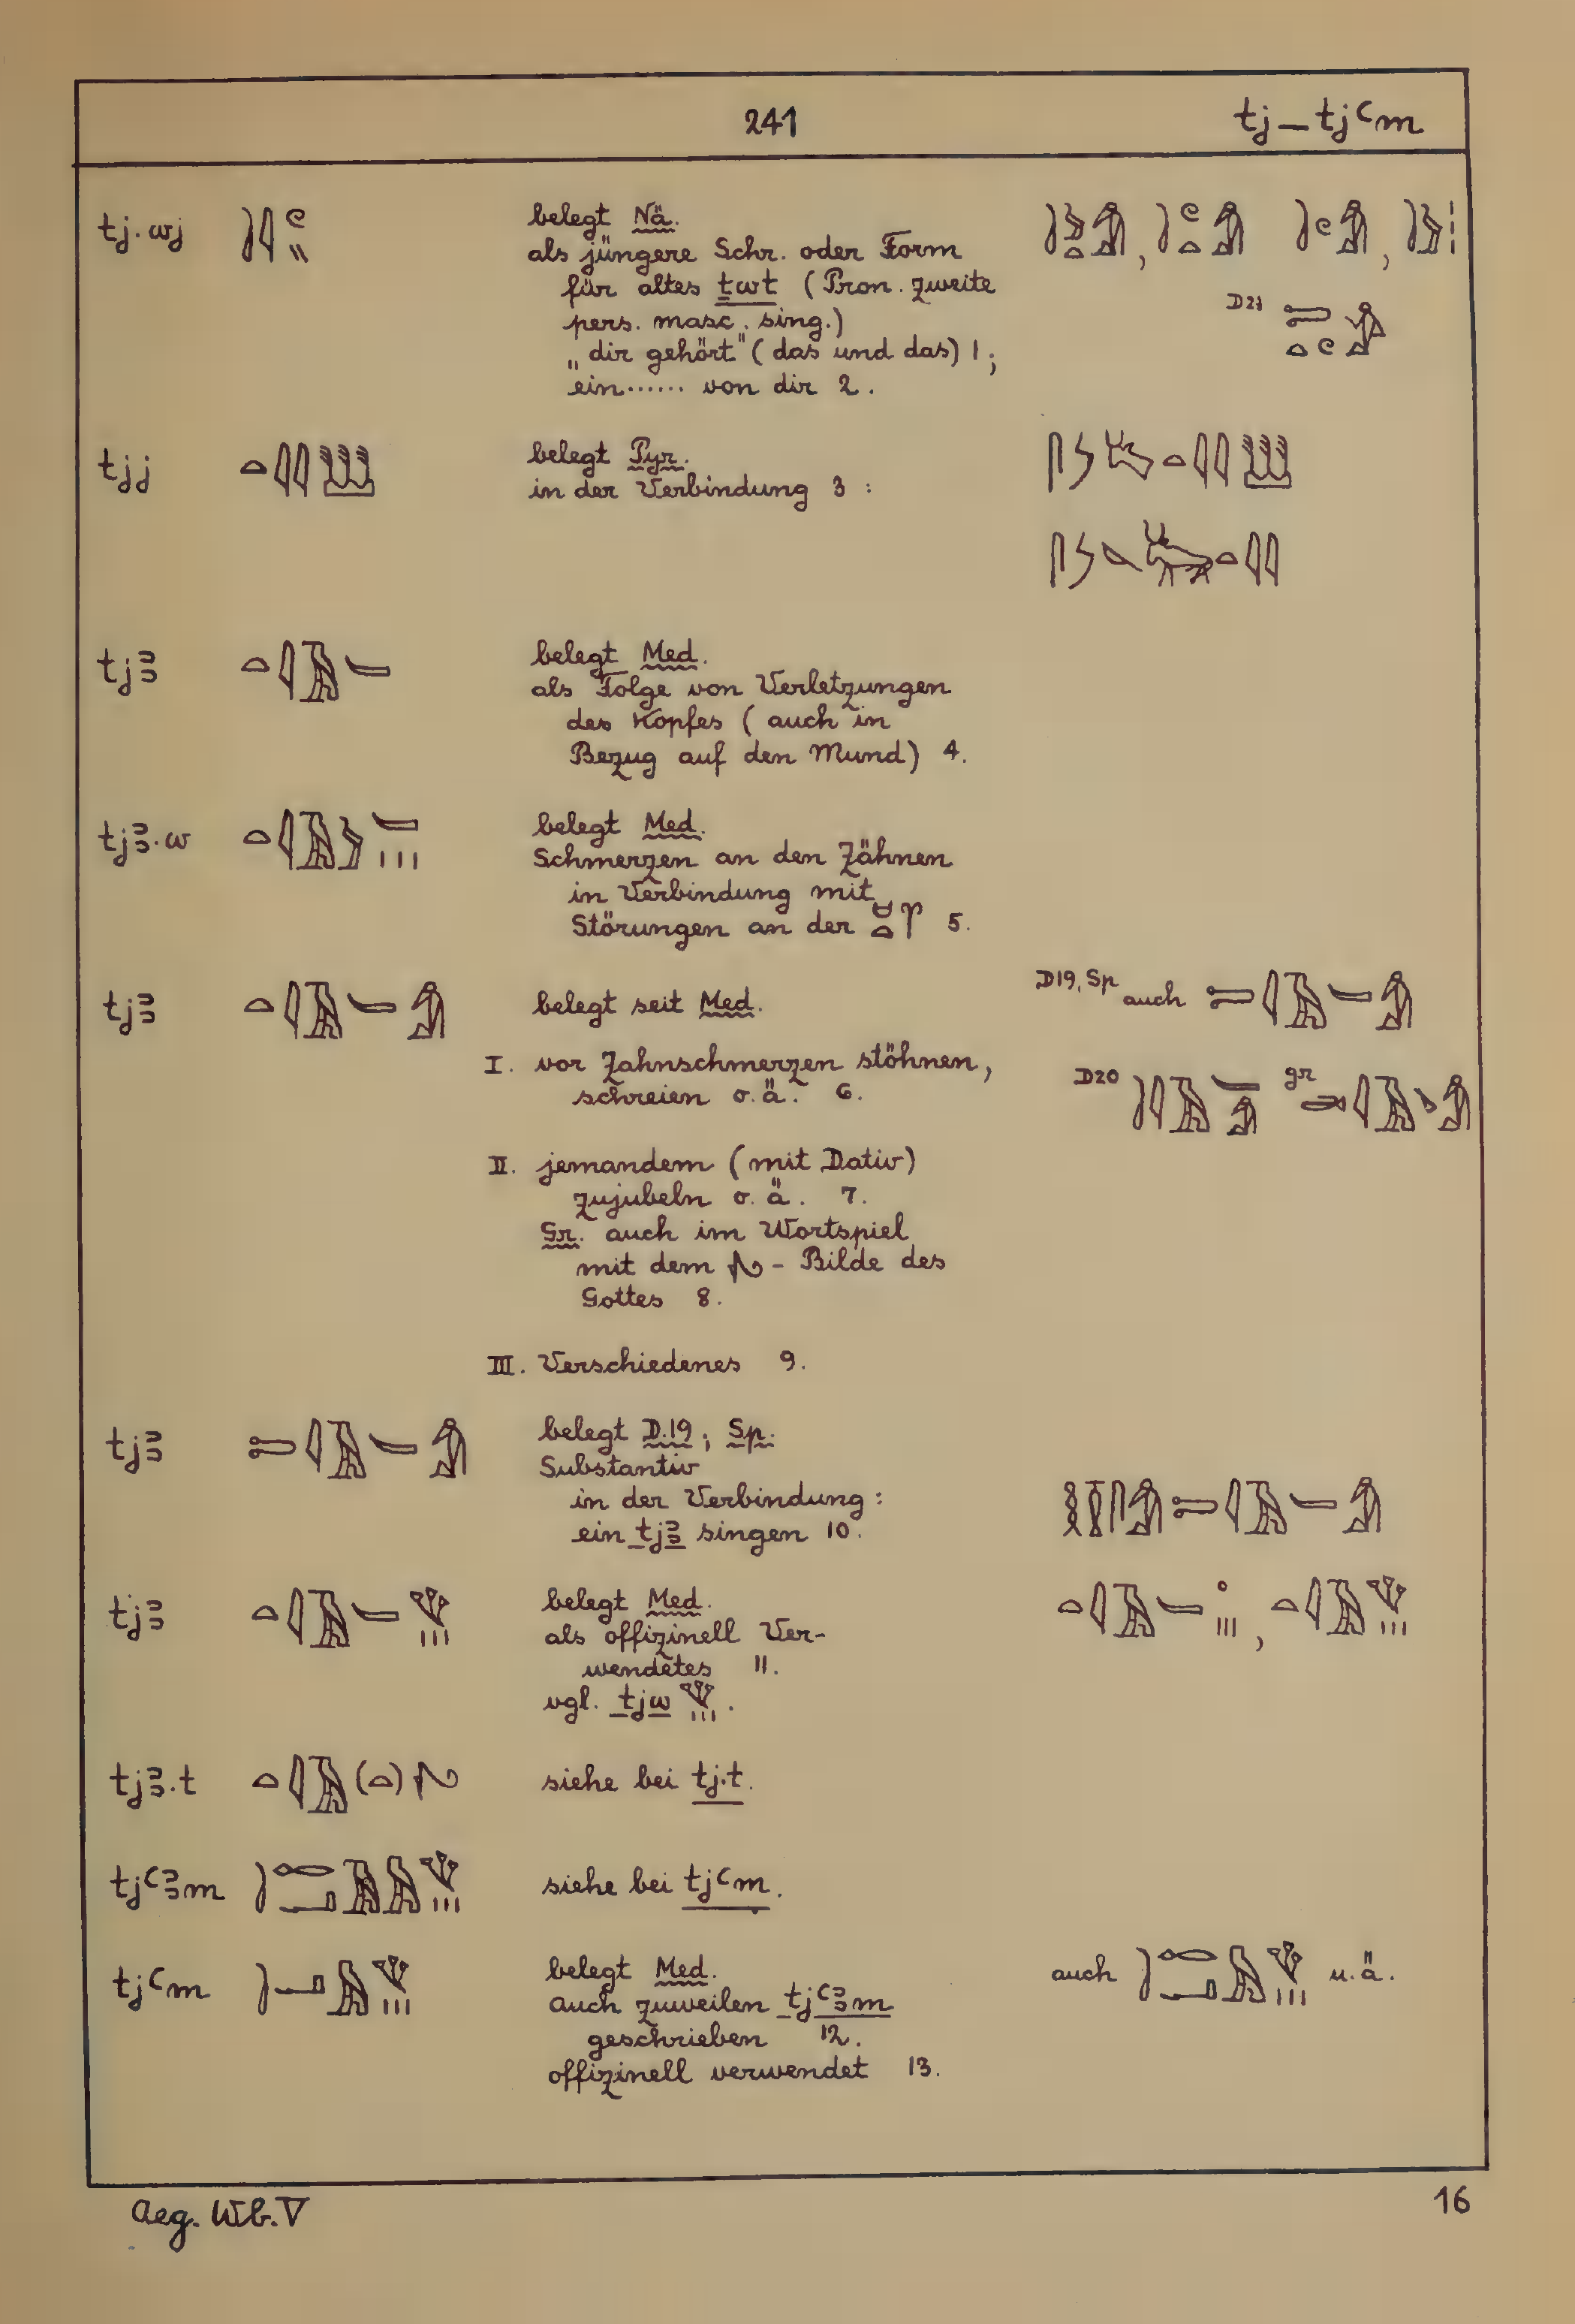 241
tj – tjꜥm
tj.wj
belegt Nä.
als jüngere Schr. oder Form
für altes ṯwt (Pron. zweite
pers. masc. sing.)
„dir gehört" (das und das) 1;
ein ...... von dir 2.
D21
tjj
belegt Pyr.
in der Verbindung 3 :
tjꜣ
belegt Med.
als Folge von Verletzungen
des Kopfes (auch in
Bezug auf den Mund) 4.
tjꜣ.w
belegt Med.
Schmerzen an den Zähnen
in Verbindung mit
Störungen an der 5.
tjꜣ
belegt seit Med.
D19, Sp auch
I. vor Zahnschmerzen stöhnen,
schreien o. ä. 6.
D20 gr
II. jemandem (mit Dativ)
zujubeln o. ä. 7.
Gr. auch im Wortspiel
mit dem - Bilde des
Gottes 8.
III. Verschiedenes 9.
tjꜣ
belegt D.19; Sp.
Substantiv
in der Verbindung :
ein tjꜣ singen 10.
tjꜣ
belegt Med.
als offizinell Ver-
wendetes 11.
vgl. tjw .
tjꜣ.t
siehe bei tj.t.
tjꜥꜣm
siehe bei tjꜥm.
tjꜥm
belegt Med.
auch u. ä.
auch zuweilen tjꜥꜣm
geschrieben 12.
offizinell verwendet 13.
Aeg. Wb. V
16